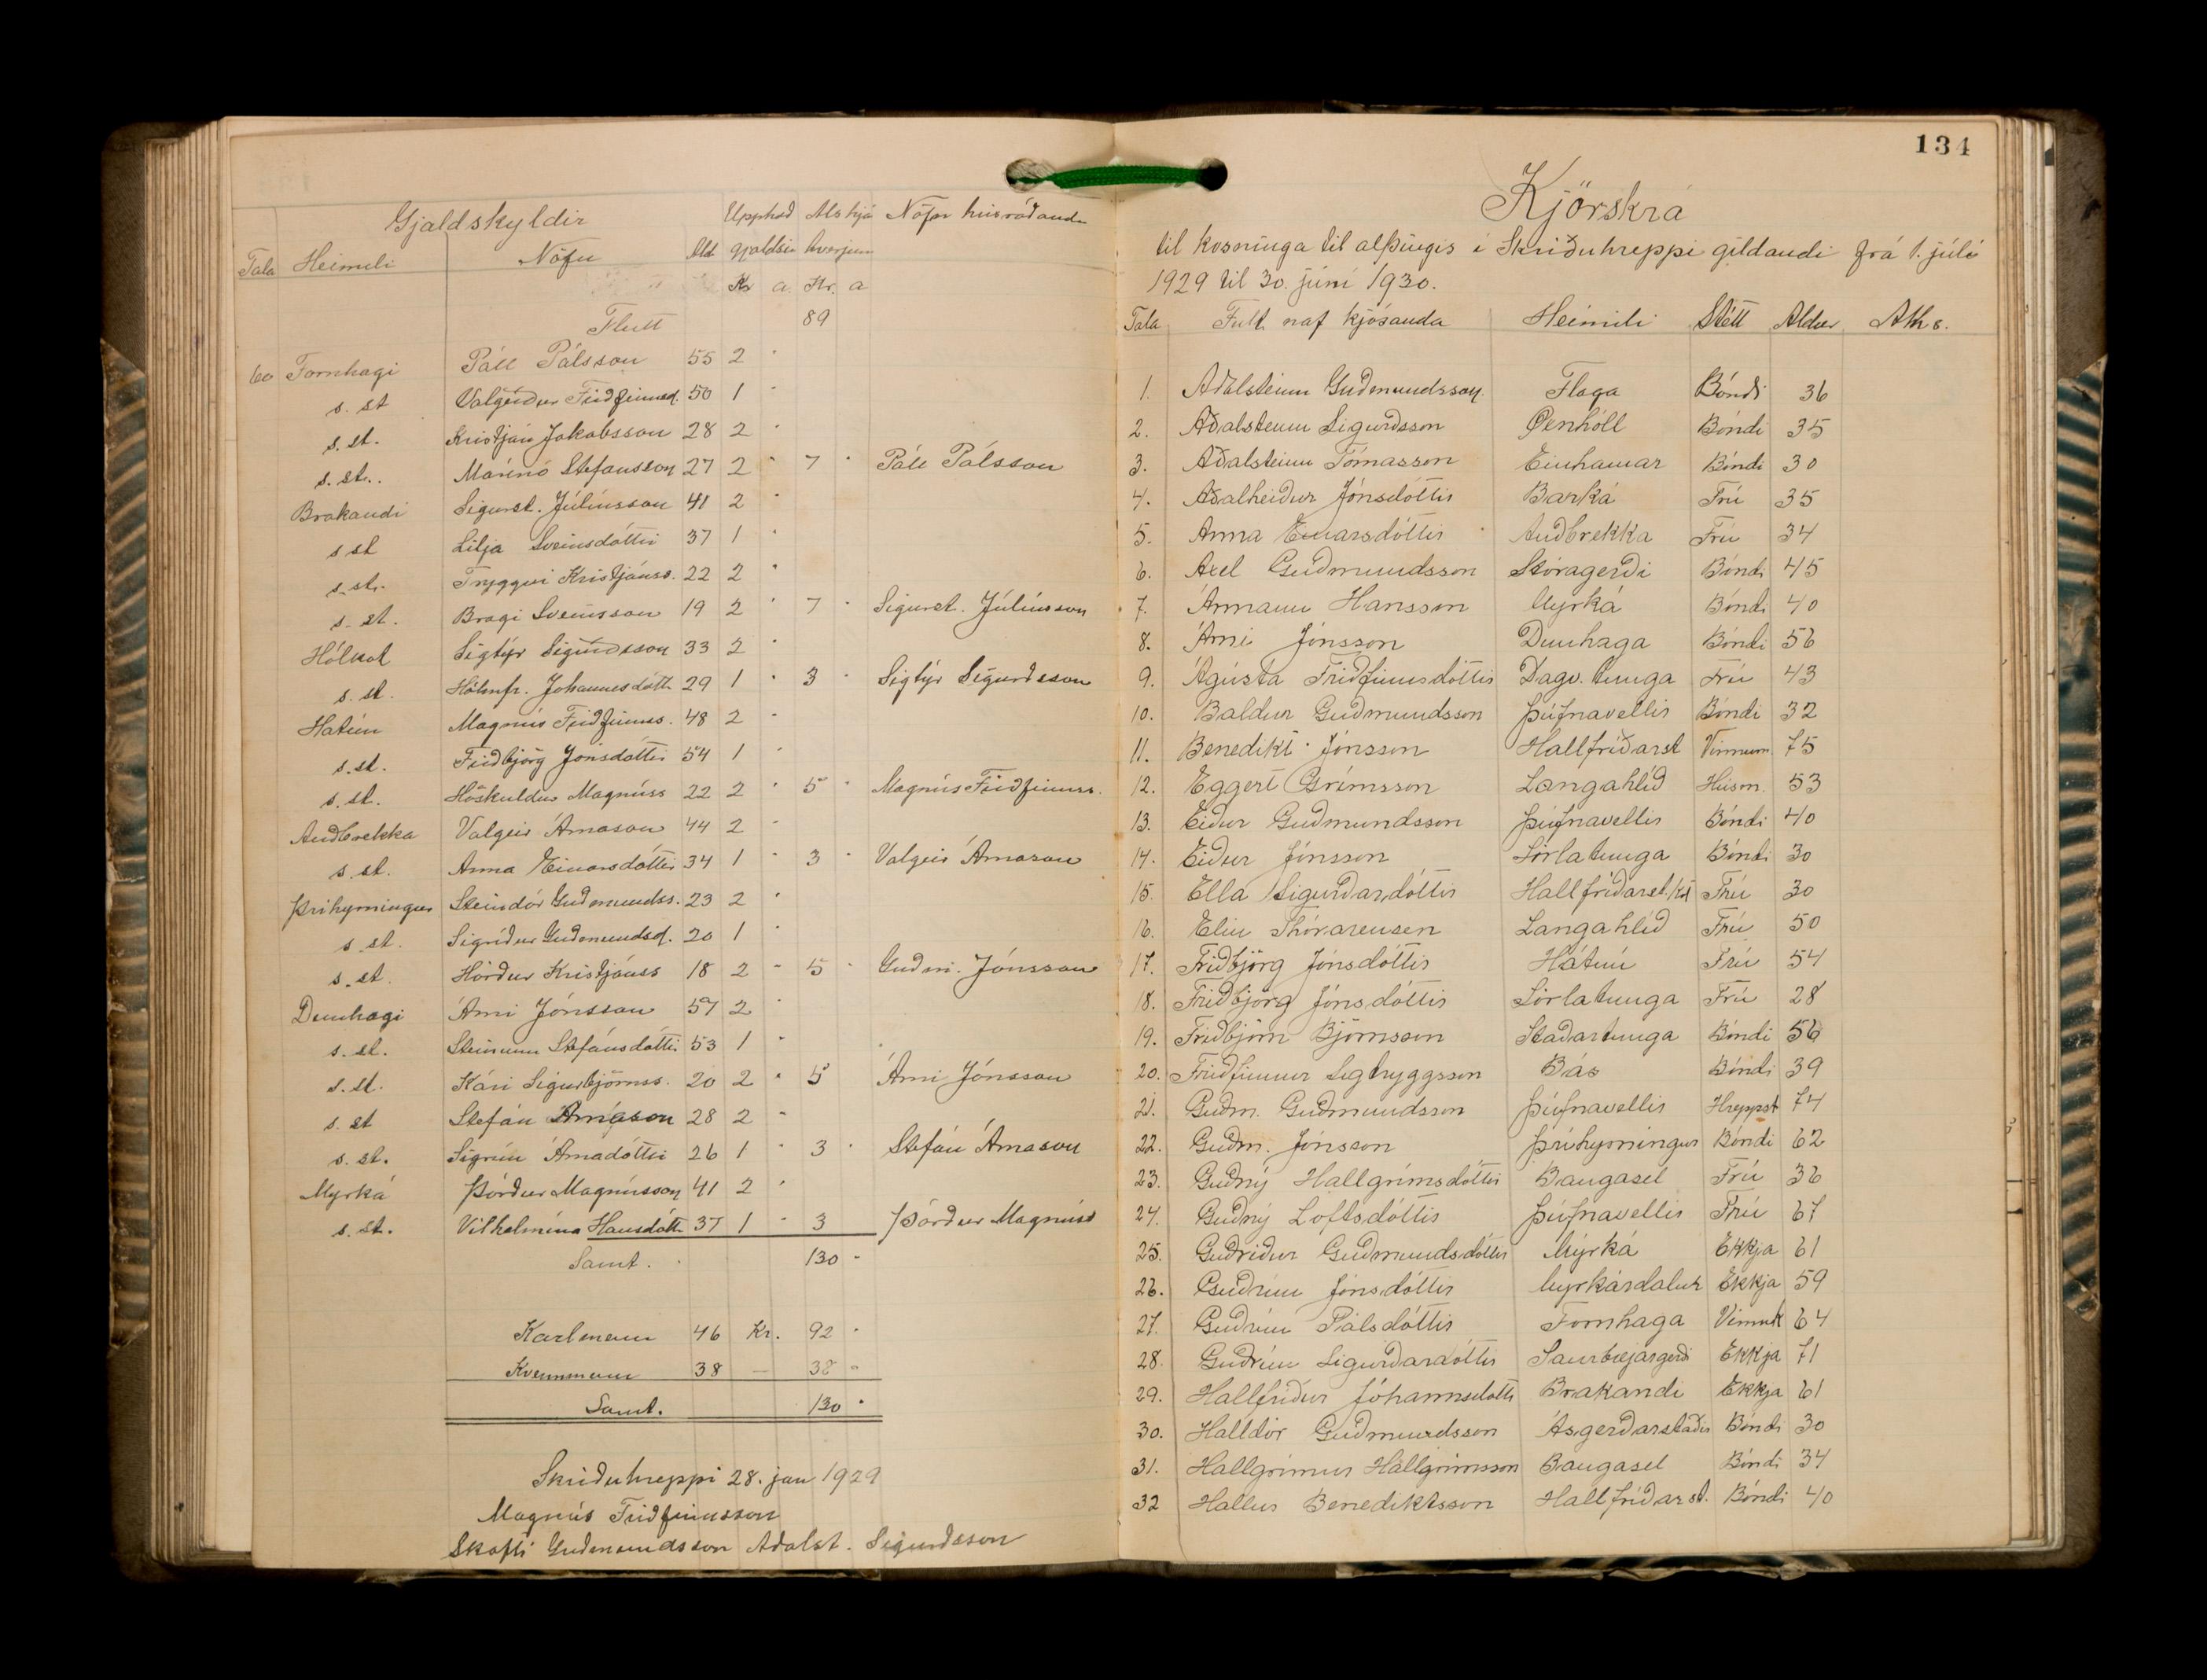 Gjaldskyldir Upphæð Als hjá Nöfn húsráðanda
Tala Heimili Nöfn Ald. gjaldsin hverjum
Kr a. Kr. a
Flutt 89
60 Fornhagi Páll Pálsson 55 2 "
s. st Valgerður Friðfinnsd. 50 1 "
s. st. Kristján Jakobsson 28 2 "
s. st.. Marinó Stefansson 27 2 " 7 " Páll Pálsson
Brakandi Sigurst. Júlíusson 41 2
s st Lilja Sveinsdóttir 37 1 "
s. st. Tryggvi Kristjánss. 22 2 "
s. st. Bragi Sveinsson 19 2 " 7 " Sigurst. Júlíusson
Hólkot Sigtýr Sigurðsson 33 2 "
s. st. Hólmfr. Johannesdótt. 29 1 " 3 " Sigtýr Sigurðsson
Hatún Magnús Friðfinnss. 48 2 "
s. st. Friðbjörg Jónsdóttir 54 1 "
s. st. Höskuldur Magnúss 22 2 " 5 " Magnús Friðfinnss.
Auðbrekka Valgeir Árnason 44 2 "
s. st. Anna Einarsdóttir 34 1 " 3 " Valgeir Árnason
Þríhyrningur Steindór Guðmundss. 23 2 "
s. st. Sigríður Guðmundsd. 20 1 "
s. st. Hörður Kristjánss 18 2 " 5 " Guðm. Jónsson
Dunhagi Árni Jónsson 57 2 "
s. st. Steinunn Stefánsdóttir 53 1 "
s. st. Kári Sigurbjörnss. 20 2 " 5 Árni Jónsson
s. st Stefán Árnason 28 2 "
s. st. Sigrún Árnadóttir 26 1 " 3 " Stefán Árnason
Myrká Þórður Magnússon 41 2 "
s. st. Vilhelmína Hansdótt. 37 1 " 3 Þórður Magnúss
Samt. 130 "
Karlmenn 46 Kr. 92 "
Kvennmenn 38 — 38 "
Samt. 130 "
Skriðuhreppi 28. jan 1929
Magnús Friðfinnsson
Skafti Guðmundsson Aðalst. Sigurðsson
134
Kjörskrá
til kosninga til alþingis í Skriðuhreppi gildandi frá 1. júlí
1929 til 30. júní 1930.
Tala Fullt naf kjósanda Heimili Stétt Aldur Aths.
1. Aðalsteinn Guðmundsson Flaga Bóndi 36
2. Aðalsteinn Sigurðsson Øxnhóll Bóndi 35
3. Aðalsteinn Tómasson Einhamar Bóndi 30
4. Aðalheiður Jónsdóttir Barká Frú 35
5. Anna Einarsdóttir Auðbrekka Frú 34
6. Axel Guðmundsson Stóragerði Bóndi 45
7. Ármann Hansson Myrká Bóndi 40
8. Árni Jónsson Dunhaga Bóndi 56
9. Ágústa Friðfinnsdóttir Dagv. tunga Frú 43
10. Baldur Guðmundsson Þúfnavellir Bóndi 32
11. Benedikt Jónsson Hallfríðarst Vinnum 75
12. Eggert Grímsson Langahlíð Húsm. 53
13. Eiður Guðmundsson Þúfnavellir Bóndi 40
14. Eiður Jónsson Sörlatunga Bóndi 30
15. Ella Sigurðardóttir Hallfríðarst.kot Frú 30
16. Elin Thórarensen Langahlíð Frú 50
17. Friðbjörg Jónsdóttir Hátún Frú 54
18. Friðbjörg Jónsdóttir Sörlatunga Frú 28
19. Friðbjörn Björnsson Staðartunga Bóndi 56
20. Friðfinnur Sigtryggsson Bás Bóndi 39
21. Guðm. Guðmundsson Þúfnavellir Hreppst 74
22. Guðm. Jónsson Þríhyrningur Bóndi 62
23. Guðný Hallgrímsdóttir Baugasel Frú 36
24. Guðný Loftsdóttir Þúfnavellir Frú 67
25. Guðríður Guðmundsdóttir Myrká Ekkja 61
26. Guðrún Jónsdóttir Myrkárdalur Ekkja 59
27. Guðrún Pálsdóttir Fornhaga Vinnuk 64
28. Guðrún Sigurðardóttir Saurbæjargerði Ekkja 71
29. Hallfríður Jóhannsdóttir Brakandi Ekkja 61
30. Halldór Guðmundsson Ásgerðarstaðir Bóndi 30
31. Hallgrímur Hallgrímsson Baugasel Bóndi 34
32 Hallur Benediktsson Hallfríðarst. Bóndi 40